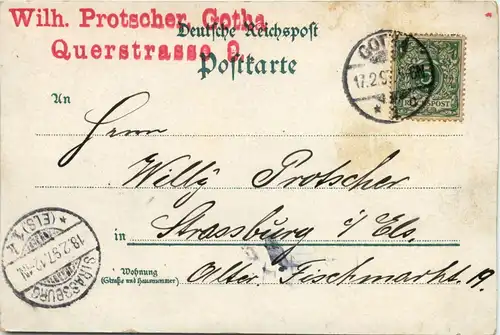 Wilh. Protscher, Gotha
Querstrasse 9.
Deutsche Reichspost
Postkarte
GOTHA
17.2.97
REICHSPOST
An
Herrn
Willy Protscher
in Strassburg i/Els.
Wohnung
(Straße und Hausnummer)
Alter Fischmarkt 19.
STRASSBURG
* (ELS.) 1 *
18.2.97.